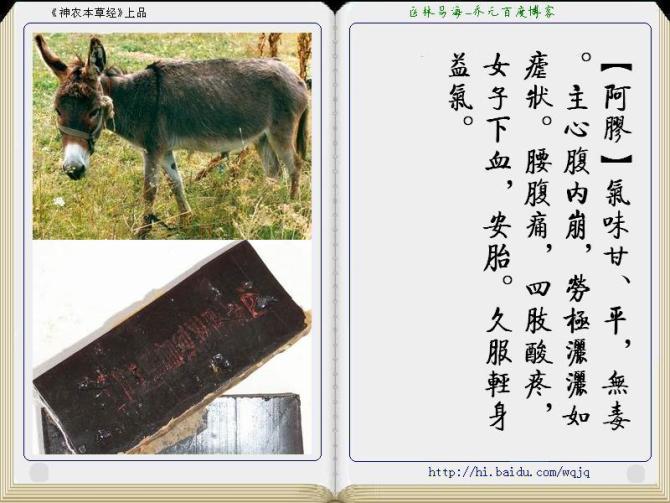 《神农本草经》上品
医林易海-乔元百度博客
【阿膠】氣味甘、平，無毒
。主心腹内崩，勞極灑灑如
瘧狀。腰腹痛，四肢酸疼，
女子下血，安胎。久服輕身
益氣。
http://hi.baidu.com/wqjq